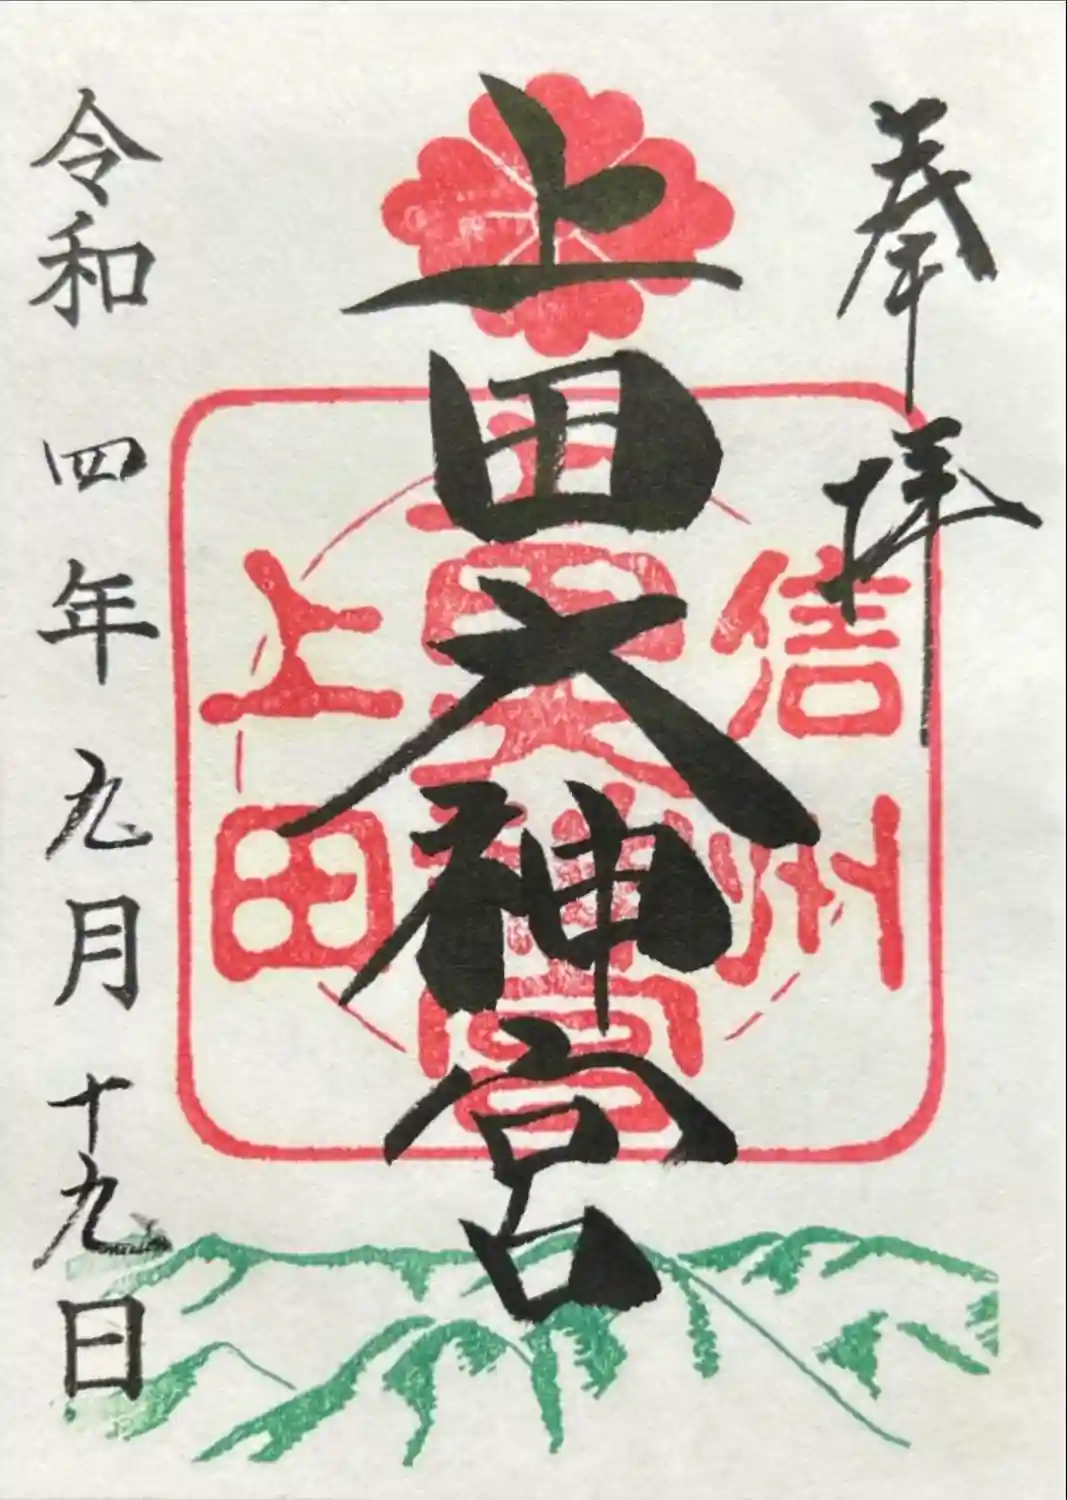 奉拝
上田大神宮
信州
上田
皇大神宮
令和四年九月十九日